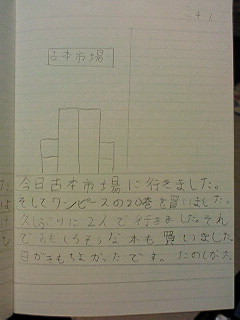 古本市場
今日古本市場に行きました。
そしてワンピースの20巻を買いました。
久しぶりに2人で行きました。それ
でおもしろそうな本も買いました。
日がきもちよかったです。たのしかった